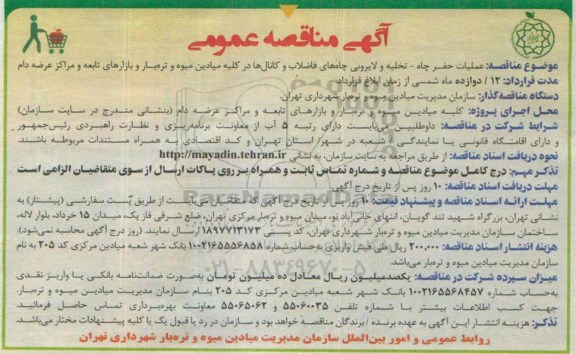 آگهی مناقصه عمومی
موضوع مناقصه: عملیات حفر چاه - تخلیه و لایروبی چاه‌های فاضلاب و کانال‌ها در کلیه میادین میوه و تره‌بار و بازارهای تابعه و مراکز عرضه دام
مدت قرارداد: ۱۲ / دوازده ماه شمسی از زمان ابلاغ قرارداد
دستگاه مناقصه‌گذار: سازمان مدیریت میادین میوه و تره‌بار شهرداری تهران
محل اجرای پروژه: کلیه میادین میوه و تره‌بار و بازارهای تابعه و مراکز عرضه دام (بنشانی مندرج در سایت سازمان)
شرایط شرکت در مناقصه: داوطلبین می‌بایست دارای رتبه ۵ آب از معاونت برنامه‌ریزی و نظارت راهبردی رئیس‌جمهور
و دارای اقامتگاه قانونی یا نمایندگی یا شعبه در شهر استان تهران و کد اقتصادی به همراه مستندات مربوطه باشند.
نحوه دریافت اسناد مناقصه: از طریق مراجعه به سایت سازمان، به نشانی http://mayadin.tehran.ir
تذکر مهم: درج کامل موضوع مناقصه و شماره تماس ثابت و همراه بر روی پاکات ارسال از سوی متقاضیان الزامی است
مهلت دریافت اسناد مناقصه: ۱۰ روز پس از تاریخ درج آگهی
مهلت ارائه اسناد مناقصه و پیشنهاد قیمت: ۱۰ روز پس از تاریخ درج آگهی که متقاضی می‌بایست از طریق پست سفارشی (پیشتاز) به
نشانی تهران، بزرگراه شهید تند گویان، انتهای خانی‌آباد نو، میدان میوه و تره‌بار مرکزی تهران، ضلع شرقی فاز یک، میدان ۱۵ خرداد، بلوار لاله،
ساختمان سازمان مدیریت میادین میوه و تره‌بار شهرداری تهران، کد پستی ۱۸۹۷۷۱۳۱۷۳ ارسال نمایند. (روز درج آگهی محاسبه نمی‌شود).
هزینه انتشار اسناد مناقصه: ۲۰۰,۰۰۰ ریال طی فیش واریزی به حساب شماره ۱۰۰۲۱۶۵۵۵۶۸۵۸ بانک شهر شعبه میادین مرکزی کد ۲۰۵ به نام
سازمان مدیریت میادین میوه و تره‌بار می‌باشد.
میزان سپرده شرکت در مناقصه: یکصدمیلیون ریال معادل ده میلیون تومان به‌صورت ضمانت‌نامه بانکی یا واریز نقدی
به‌حساب شماره ۱۰۰۲۱۶۵۵۶۸۴۵۷ بانک شهر شعبه میادین مرکزی کد ۲۰۵ بنام سازمان مدیریت میادین میوه و تره‌بار.
جهت کسب اطلاعات بیشتر با شماره تلفن ۵۵۰۶۰۰۳۵ و ۵۵۰۶۵۰۶۲ معاونت بهره‌برداری تماس حاصل فرمائید.
تذکر: هزینه انتشار این آگهی به عهده برنده / برندگان مناقصه خواهد بود و سازمان در رد یا قبول یک یا کلیه پیشنهادات مختار می‌باشد.
روابط عمومی و امور بین‌الملل سازمان مدیریت میادین میوه و تره‌بار شهرداری تهران